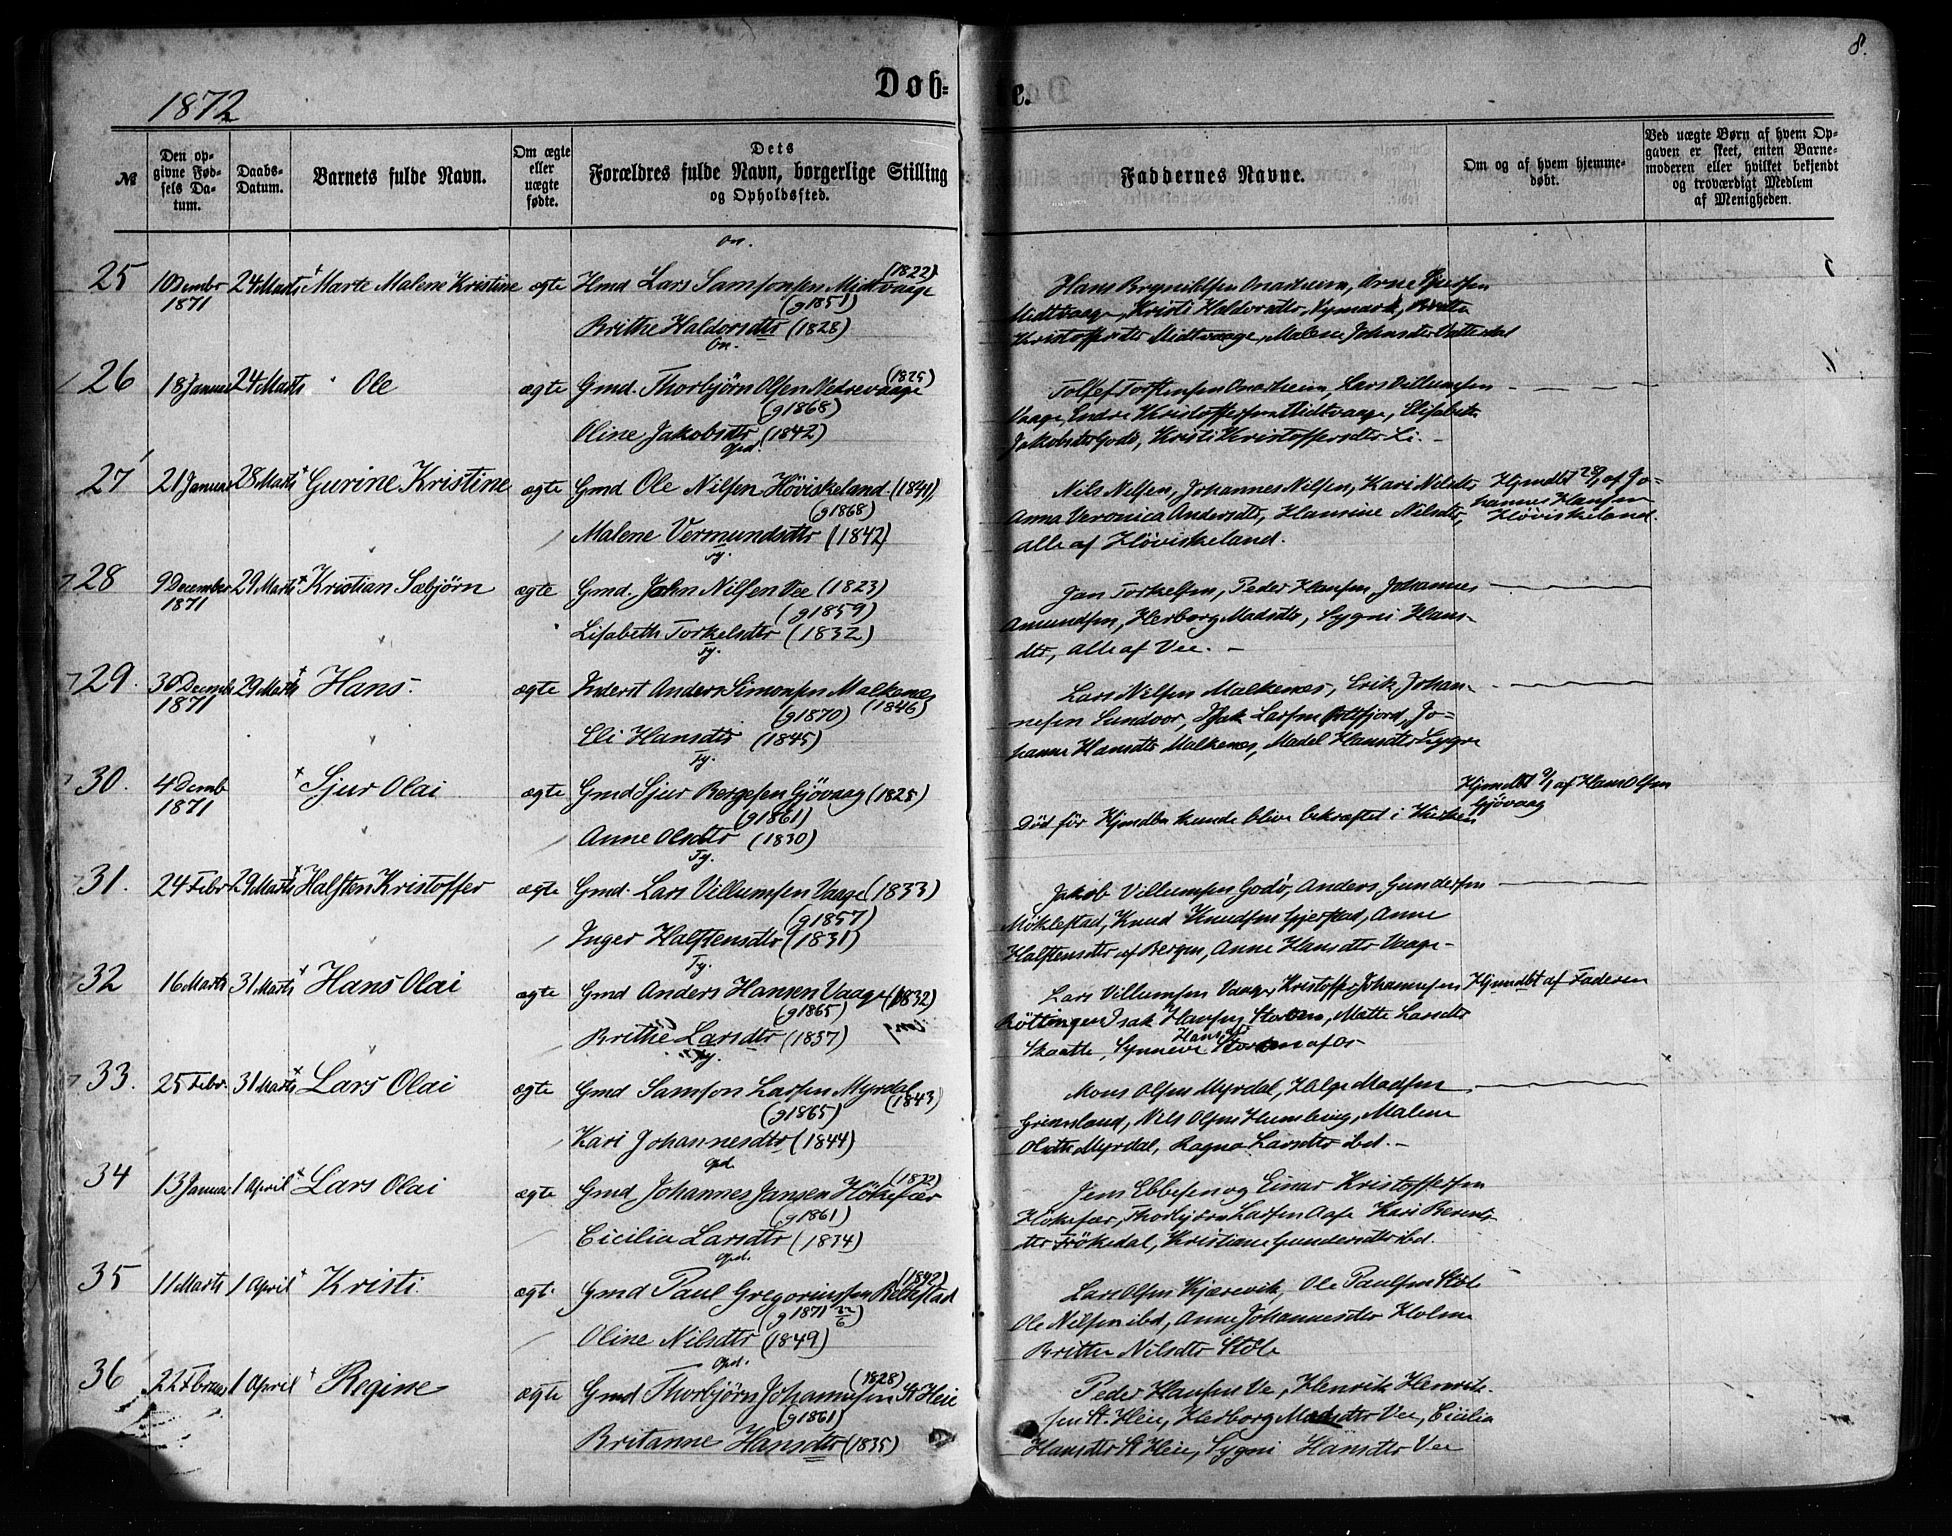 8.
Døb=
te.
1872
№
Den op-
givne Fød-
sels Da-
tum.
Daabs-
Datum.
Barnets fulde Navn.
Om ægte
eller
uægte
fødte.
Dets
Forældres fulde Navn, borgerlige Stilling
og Opholdssted.
Faddernes Navne.
Om og af hvem hjemme-
døbt.
Ved uægte Børn af hvem Op-
gaven er skeet, enten Barne-
moderen eller hvilket bekjendt
og troværdigt Medlem
af Menigheden.
On.
25 10 Dcembr 24 Marts Marte Malene Kristine ægte Gmd Lars Samsonsen Midtvaage (1822)
1871 (g1851)
Brithe Haldorsdtr (1828)
Hans Brynildsen Onarheim, Arne
Midtvaage, Kristi Haldorsdtr, Nymark, Britta
Kristoffersdtr Midtvaage, Malene Johnsdtr
On.
26 18 Januar 24 Marts Ole ægte Gmd. Thorbjørn Olsen Nedrevaage (1825)
(g1868)
Oline Jakobsdtr (1842)
Tollef Torstensen Onarheim, Lars Villumsen
Vaage, Endre Kristoffersen Midtvaage, Elisabeth
Jakobsdtr Godø, Kristi Kristoffersdtr Li. -
Opd.
27 21 Januar 28 Marts Gurine Kristine ægte Gmd Ole Nilsen Høviskeland (1841)
(g1868)
Malene Vermundsdtr (1842)
Nils Nilsen, Johannes Nilsen, Kari Nilsdtr
Anna Veronica Andersdtr, Hansine Nilsdtr,
alle af Høviskeland.
Hjmdbt af Jo-
hannes Hansen
Høviskeland.
Ty.
28 9 December 29 Marts Kristian Sæbjørn ægte Gmd. John Nilsen Vee (1823)
1871 (g1859)
Lisabeth Torkelsdtr (1832)
Jan Torkelsen, Peder Hansen, Johannes
Amundsen, Herborg Madsdtr, Sygni Hans-
dtr, alle af Vee. -
Ty.
29. 30 Decemb 29 Marts Hans. ægte Inderst Anders Simonsen Malkenes
1871 (g1870) (1846)
Eli Hansdtr (1845)
Lars Nilsen Malkenes, Erik Johan-
nesen Sundvor, Isak Larsen
hanne Hansdtr Malkenes, Madel Hansdtr
Ty.
30. 4 Dcemb Sjur Olai ægte Gmd Sjur Børgesen Gjøvaag (1825)
1871 (g1861)
Anne Olsdtr (1830)
Død før Hjmdba kunde blive bekræftet i Kirken
Hjmdbt 9/1 af Hans Olsen
Gjøvaag
Ty.
31. 24 Febr 29 Marts Halsten Kristoffer ægte Gmd. Lars Villumsen Vaage (1833)
(g1857)
Inger Halstensdtr (1831)
Jakob Villumsen Godø, Anders Gundersen
Møklestad, Knud Knudsen Gjerstad, Anne
Halstensdtr af Bergen, Anne Hansdtr Vaage -
Ty.
32 16 Marts 31 Marts Hans Olai ægte Gmd Anders Hansen Vaage (1832)
(g1865)
Brithe Larsdtr (1837)
Lars Villumsen Vaage, Kristoffer Johannesen
Røttingen Isak Hansen, Mette Larsdtr
Skaatte, Synneve Hansdtr
Hjmdbt af Faderen
Ty.
33. 25 Febr. 31 Marts Lars Olai ægte Gmd Samson Larsen Myrdal (1843)
(g1865)
Kari Johannesdtr (1844)
Mons Olsen Myrdal, Helge Madsen
Grimsland, Nils Olsen Malene
Olsdtr Myrdal, Ragna Larsdtr ibd. -
Opd.
34 13 Januar 1 April Lars Olai ægte Gmd Johannes Jansen Høkefær (1832)
(g1861)
Cicilia Larsdtr (1834)
Jens Ebbesen og Einar Kristoffersen
Høkefær, Thorbjørn Larsen Kari Bernts-
dtr Frøkedal, Kristiane Gundersdtr ibd.
Opd.
35 11 Marts 1 April Kristi ægt. Gmd Paul Gregoriussen (1842)
(g1871 22/6)
Oline Nilsdtr (1849)
Lars Olsen Kjærevik, Ole Paulsen Støle
Ole Nilsen ibd, Anne Johannesdtr Holme
Britta Nilsdtr Støle
Opd.
36 22 Febrar 1 April Regine ægte Gmd Thorbjørn Johannesen St Heie (1828)
(g1861)
Britanne Hansdtr (1835)
Peder Hansen Ve, Henrik Henrik-
sen St. Heie, Herborg Madsdtr Vee, Cicilia
Hansdtr St Heie, Sygni Hansdtr Vee